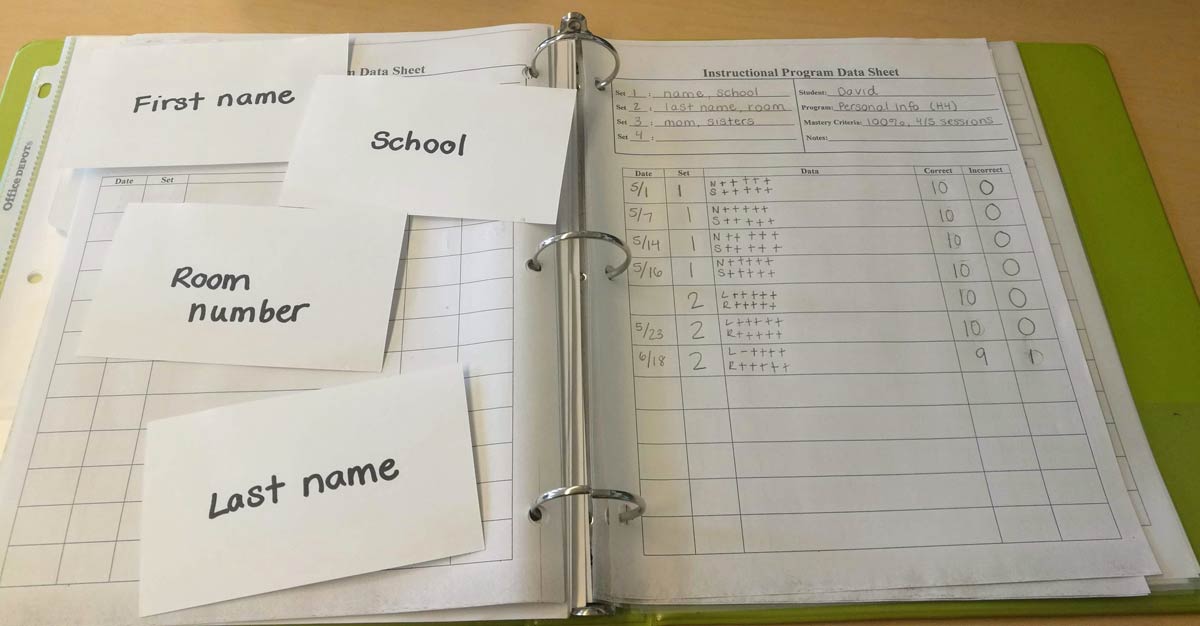 Office DEPOT®
n Data Sheet
First name
School
Date Set
Room
number
Last name
Instructional Program Data Sheet
Set 1 : name, school
Set 2 : last name, room
Set 3 : mom, sisters
Set 4 :
Student: David
Program: Personal Info (H4)
Mastery Criteria: 100%, 4/5 sessions
Notes:
Date Set Data Correct Incorrect
5/1 1 N+++++ 10 0
S+++++
5/7 1 N+++++ 10 0
S+++++
5/14 1 N+++++ 10 0
S+++++
5/16 1 N+++++ 10 0
S+++++
2 L+++++ 10 0
R+++++
5/23 2 L+++++ 10 0
R+++++
6/18 2 L-++++ 9 1
R+++++